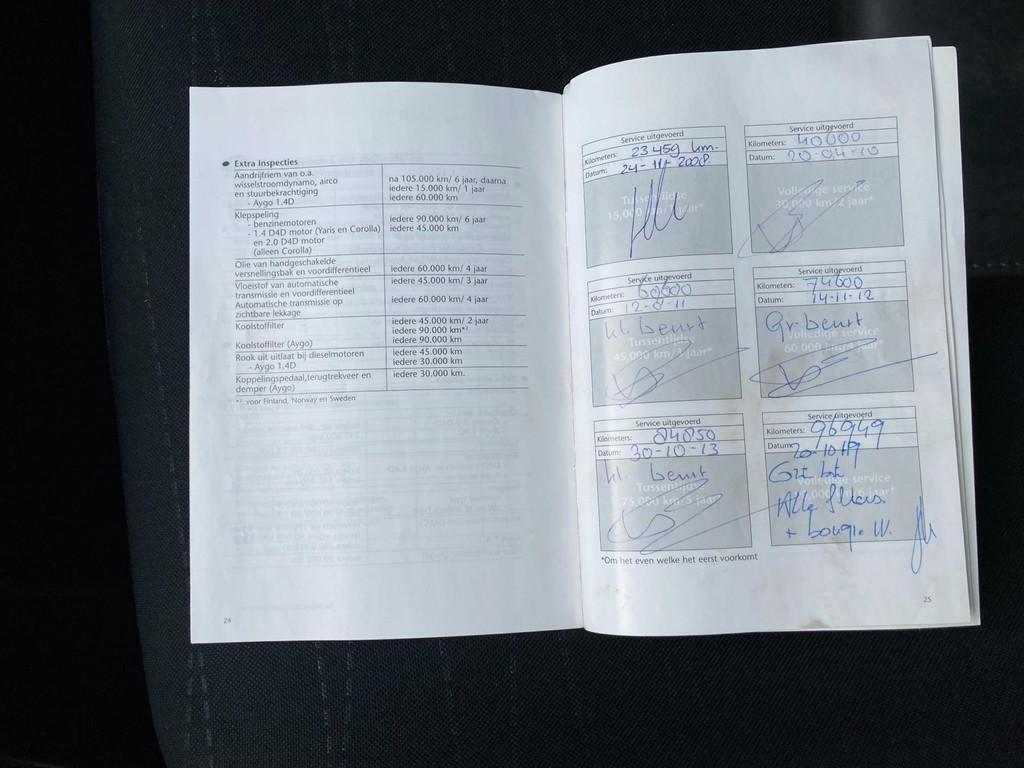 Extra Inspecties
Aandrijfriem van o.a.
wisselstroomdynamo, airco
en stuurbekrachtiging
- Aygo 1.4D
na 105.000 km/ 6 jaar, daarna
iedere 15.000 km/ 1 jaar
iedere 60.000 km
Klepspeling
- benzinemotoren
- 1.4 D4D motor (Yaris en Corolla)
en 2.0 D4D motor
(alleen Corolla)
iedere 90.000 km/ 6 jaar
iedere 45.000 km
Olie van handgeschakelde
versnellingsbak en voordifferentieel
iedere 60.000 km/ 4 jaar
Vloeistof van automatische
transmissie en voordifferentieel
Automatische transmissie op
zichtbare lekkage
iedere 45.000 km/ 3 jaar
iedere 60.000 km/ 4 jaar
Koolstoffilter
Koolstoffilter (Aygo)
iedere 45.000 km/ 2 jaar
iedere 90.000 km*²
iedere 90.000 km
Rook uit uitlaat bij dieselmotoren
- Aygo 1.4D
iedere 45.000 km
iedere 30.000 km
Koppelingspedaal,terugtrekveer en
demper (Aygo)
iedere 30.000 km.
*² voor Finland, Norway en Sweden
24
Service uitgevoerd
Kilometers: 23459 km.
Datum: 24-11-2008
Tussentijdse
15,000 km/1 jaar*
Service uitgevoerd
Kilometers: 40000
Datum: 20-04-10
Volledige service
30,000 km/2 jaar*
Service uitgevoerd
Kilometers: 60000
Datum: 12-8-11
kl. beurt
Tussentijdse
45,000 km/3 jaar*
Service uitgevoerd
Kilometers: 74000
Datum: 14-11-12
Gr. beurt
Volledige service
60,000 km/4 jaar*
Service uitgevoerd
Kilometers: 84850
Datum: 30-10-13
kl. beurt
Tussentijdse
75,000 km/5 jaar*
Service uitgevoerd
Kilometers: 96949
Datum:
service
jaar*
Alle filters
+ bougie W.
*Om het even welke het eerst voorkomt
25